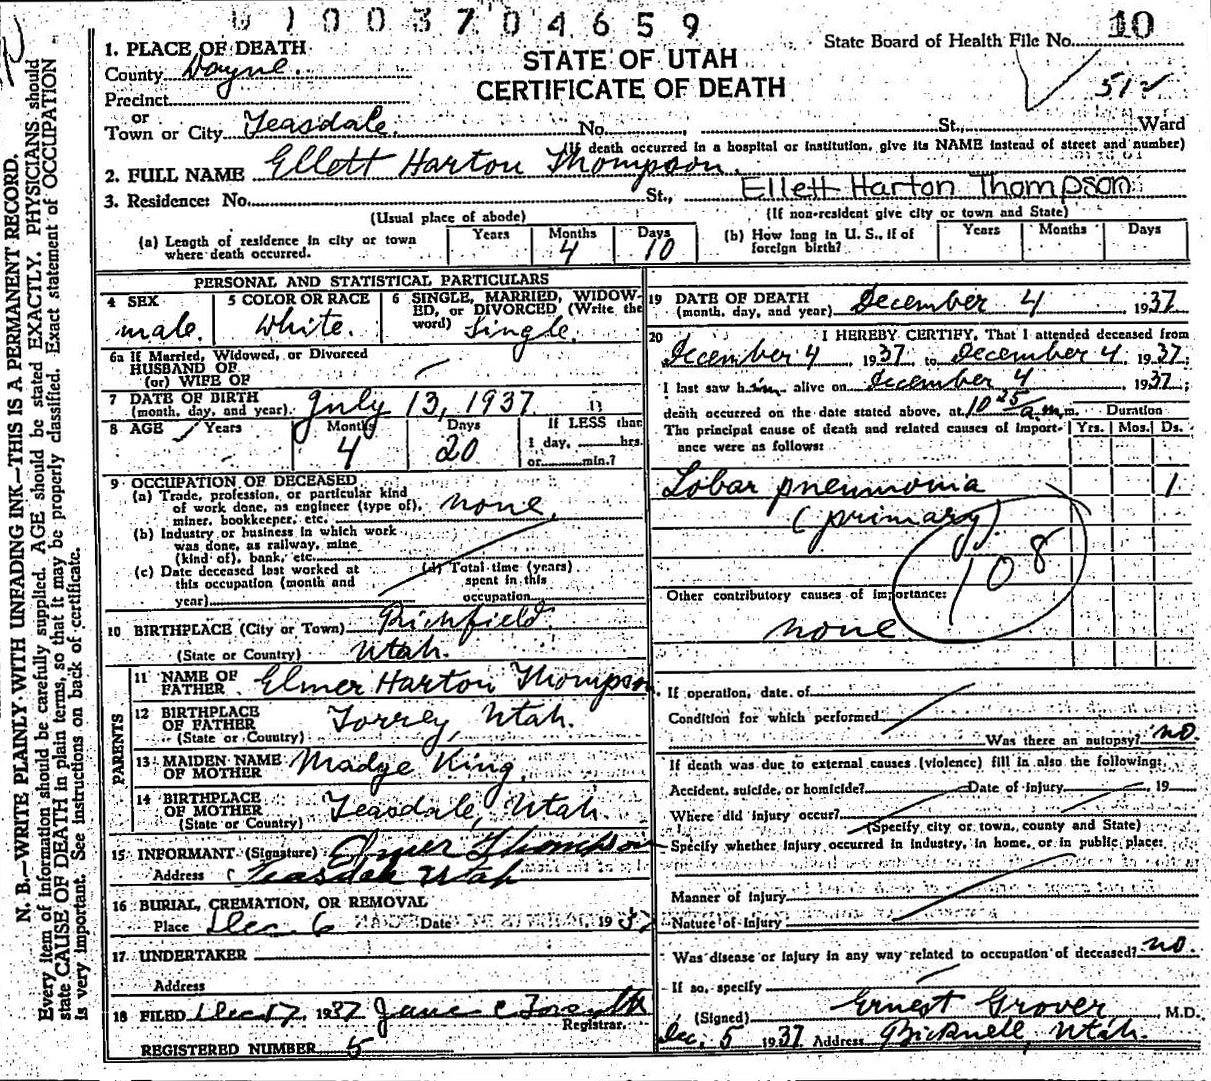 0 1 0 0 3 7 0 4 6 5 9
State Board of Health File No. 10
512
STATE OF UTAH
CERTIFICATE OF DEATH
1. PLACE OF DEATH
County Wayne.
Precinct
or
Town or City Teasdale. No. , St., Ward
(If death occurred in a hospital or institution, give its NAME instead of street and number)
2. FULL NAME Ellott Harton Thompson.
Ellett Harton Thompson
3. Residence: No. St.,
(Usual place of abode) (If non-resident give city or town and State)
(a) Length of residence in city or town where death occurred. Years Months 4 Days 10
(b) How long in U. S., if of foreign birth? Years Months Days
PERSONAL AND STATISTICAL PARTICULARS
4 SEX male.
5 COLOR OR RACE White.
6 SINGLE, MARRIED, WIDOWED, or DIVORCED (Write the word) Single.
6a If Married, Widowed, or Divorced
HUSBAND OF
(or) WIFE OF
7 DATE OF BIRTH
(month, day, and year) July 13, 1937.
8 AGE Years Months 4 Days 20 If LESS than
1 day, hrs.
or min.?
9 OCCUPATION OF DECEASED
(a) Trade, profession, or particular kind of work done, as engineer (type of), miner, bookkeeper, etc. none.
(b) Industry or business in which work was done, as railway, mine (kind of), bank, etc.
(c) Date deceased last worked at this occupation (month and year)
(d) Total time (years) spent in this occupation
10 BIRTHPLACE (City or Town) Richfield.
(State or Country) Utah.
PARENTS
11 NAME OF FATHER Elmer Harton Thompson.
12 BIRTHPLACE OF FATHER Torrey, Utah.
(State or Country)
13 MAIDEN NAME OF MOTHER Madge King.
14 BIRTHPLACE OF MOTHER Teasdale, Utah.
(State or Country)
15 INFORMANT (Signature) Elmer Thompson
Address Teasdale Utah
16 BURIAL, CREMATION, OR REMOVAL
Place Dec. 6 Date 1937
17. UNDERTAKER
Address
18 FILED Dec 17, 1937 Jane C Forsyth
Registrar.
REGISTERED NUMBER 5
19 DATE OF DEATH
(month, day, and year) December 4 1937
20 I HEREBY CERTIFY, That I attended deceased from
December 4 1937, to December 4, 1937;
I last saw him alive on December 4, 1937;
death occurred on the date stated above, at 10 25 a.m.m.
Duration
The principal cause of death and related causes of importance were as follows: Yrs. Mos. Ds.
Lobar pneumonia 1
(primary).
108
Other contributory causes of importance:
none
If operation, date of
Condition for which performed
Was there an autopsy? no.
If death was due to external causes (violence) fill in also the following:
Accident, suicide, or homicide? Date of injury , 19
Where did injury occur?
(Specify city or town, county and State)
Specify whether injury occurred in industry, in home, or in public place:
Manner of injury
Nature of injury
Was disease or injury in any way related to occupation of deceased? no.
If so, specify
(Signed) Ernest Grover , M.D.
Dec. 5 1937 Address Bicknell, Utah.
N. B.—WRITE PLAINLY WITH UNFADING INK—THIS IS A PERMANENT RECORD.
Every item of information should be carefully supplied. AGE should be stated EXACTLY. PHYSICIANS should
state CAUSE OF DEATH in plain terms, so that it may be properly classified. Exact statement of OCCUPATION
is very important. See instructions on back of certificate.